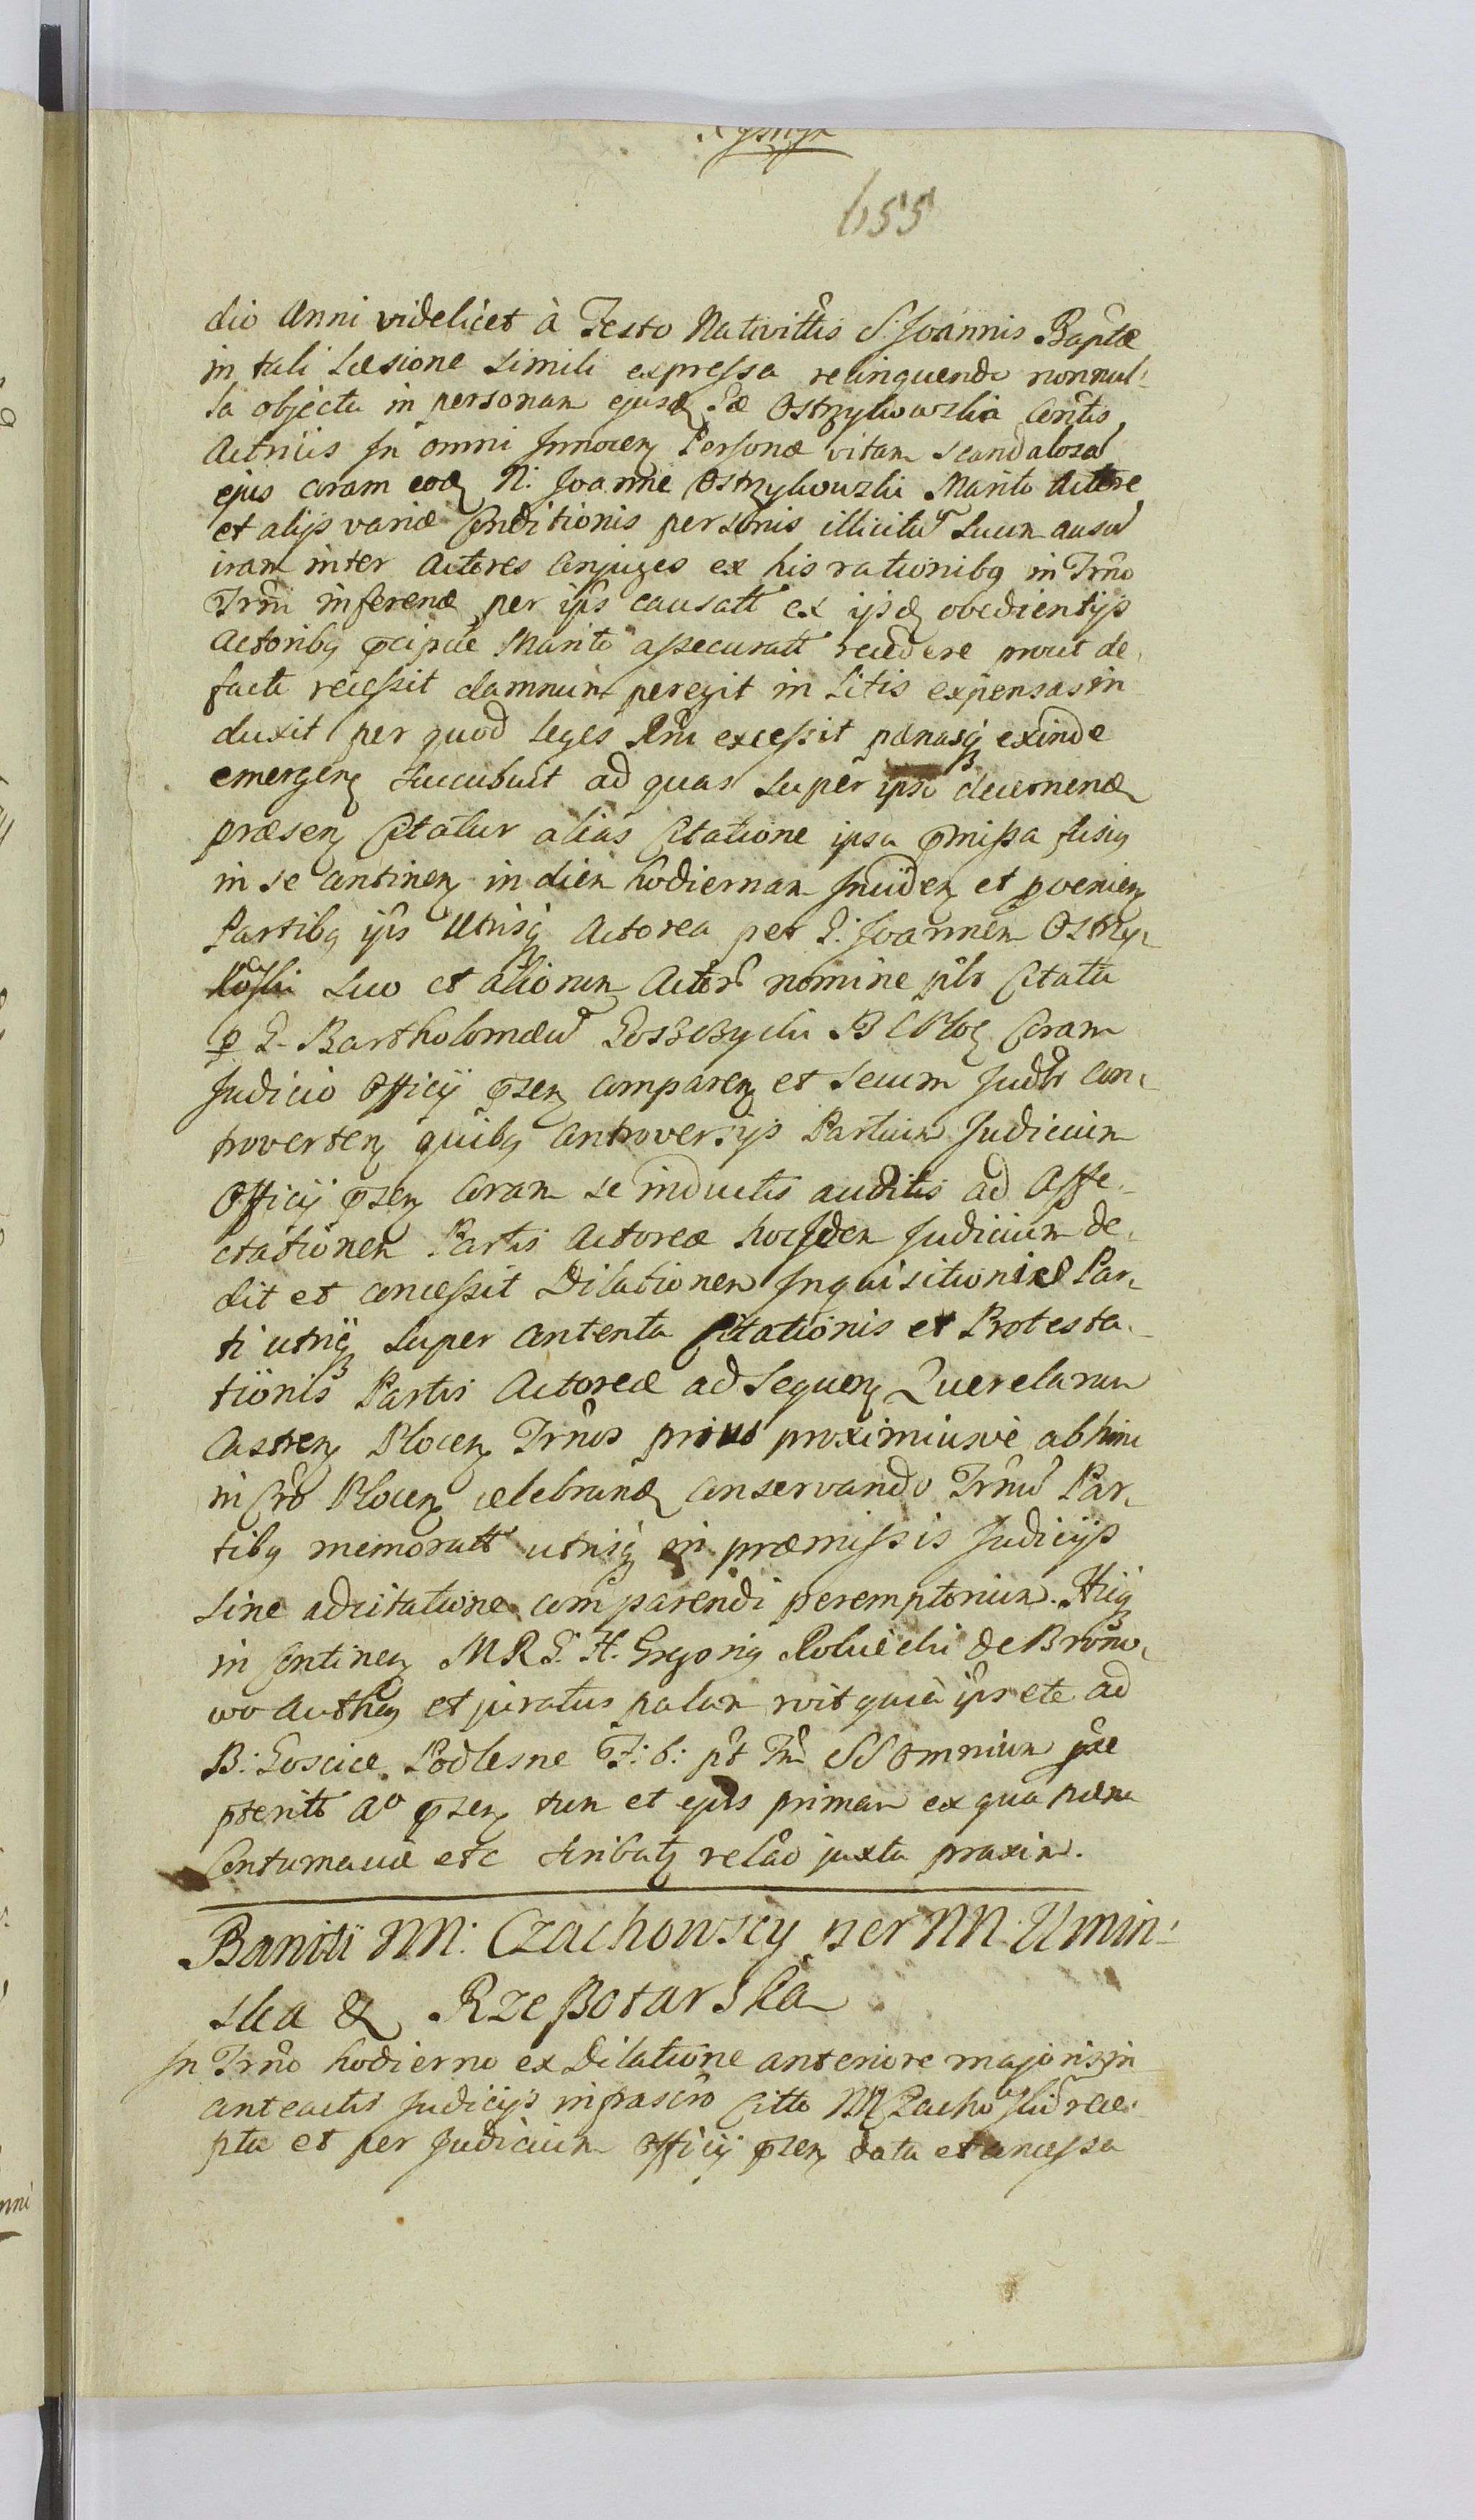 655
dio Anni videlicet à Festo Nativittis S. Joannis Baptæ
in tali Læsione simili expressa relinquendo nonnul-
la objecta in personam ejusd Gæ Ostrzykowzka Contis
Actricis In omni Innocen Personæ vitam scandalosā
ejus coram eod N: Joanne Ostrzykowzki Marito Actore
et alijs variæ Conditionis personis illicitū Secum ausū
iram inter Actores Conjuges ex his rationibq in Trno
Trni inferend per ips causatt ex ijsd obedientijs
Actoribq pcipue Marito assecuratt recedere prout de
facto recessit damnum peregit in Litis expensas in
duxit per quod Leges Rni excessit pænasq exinde
emergen succubuit ad quas super ipso decernend
præsen Citatur alias Citatione ipsa pmissa fusiq
in se Continen in diem hodiernam Inciden et pvenien
Partibq ips Utrisq Actorea per G: Joannem Ostrzy-
koski suo et aliorum Actorū nomine pls Citata
p G. Bartholomæū Goszczycki B C Ploc Coram
Judicio Officij psen comparen et secum Judlr con-
troverten quibq Controversijs Partium Judicium
Officij psen Coram se inductis auditis ad Affe-
ctationem Partis Actoreæ hocce Idem Judicium de-
dit et concessit Dilationem Inquisitionis Par-
ti utriq super Contenta Citationis et Protesta-
tionis Partis Actoreæ ad sequen Querelarum
Castren Plocen Trnos prius proximiusve abhinc
in Cro Plocen celebrand conservando Trnū Par-
tibq memoratt utrisq in præmissis Judicijs
sine adcitatione comparendi peremptorium. Huiq
in Continen M R G. H. Gregoriq de Brono-
wo Authen et juratus palam rvit quia ips etc ad
B: Goscice Podlesne F: 6: pt Fm SS Omnium
pterit Ao psen tum et ejus primam ex qua pæna
Contumaciæ etc scribatq relāo juxta praxim.
Banniti NN: Czachowscy per NN. Umin-
ska & Rzeszotarska
In Trno hodierno ex Dilatione anteriore majoris in
anteactis Judicijs infrascro Citto NN Czachoski rece-
pta et per Judicium Officij psen data et concessa